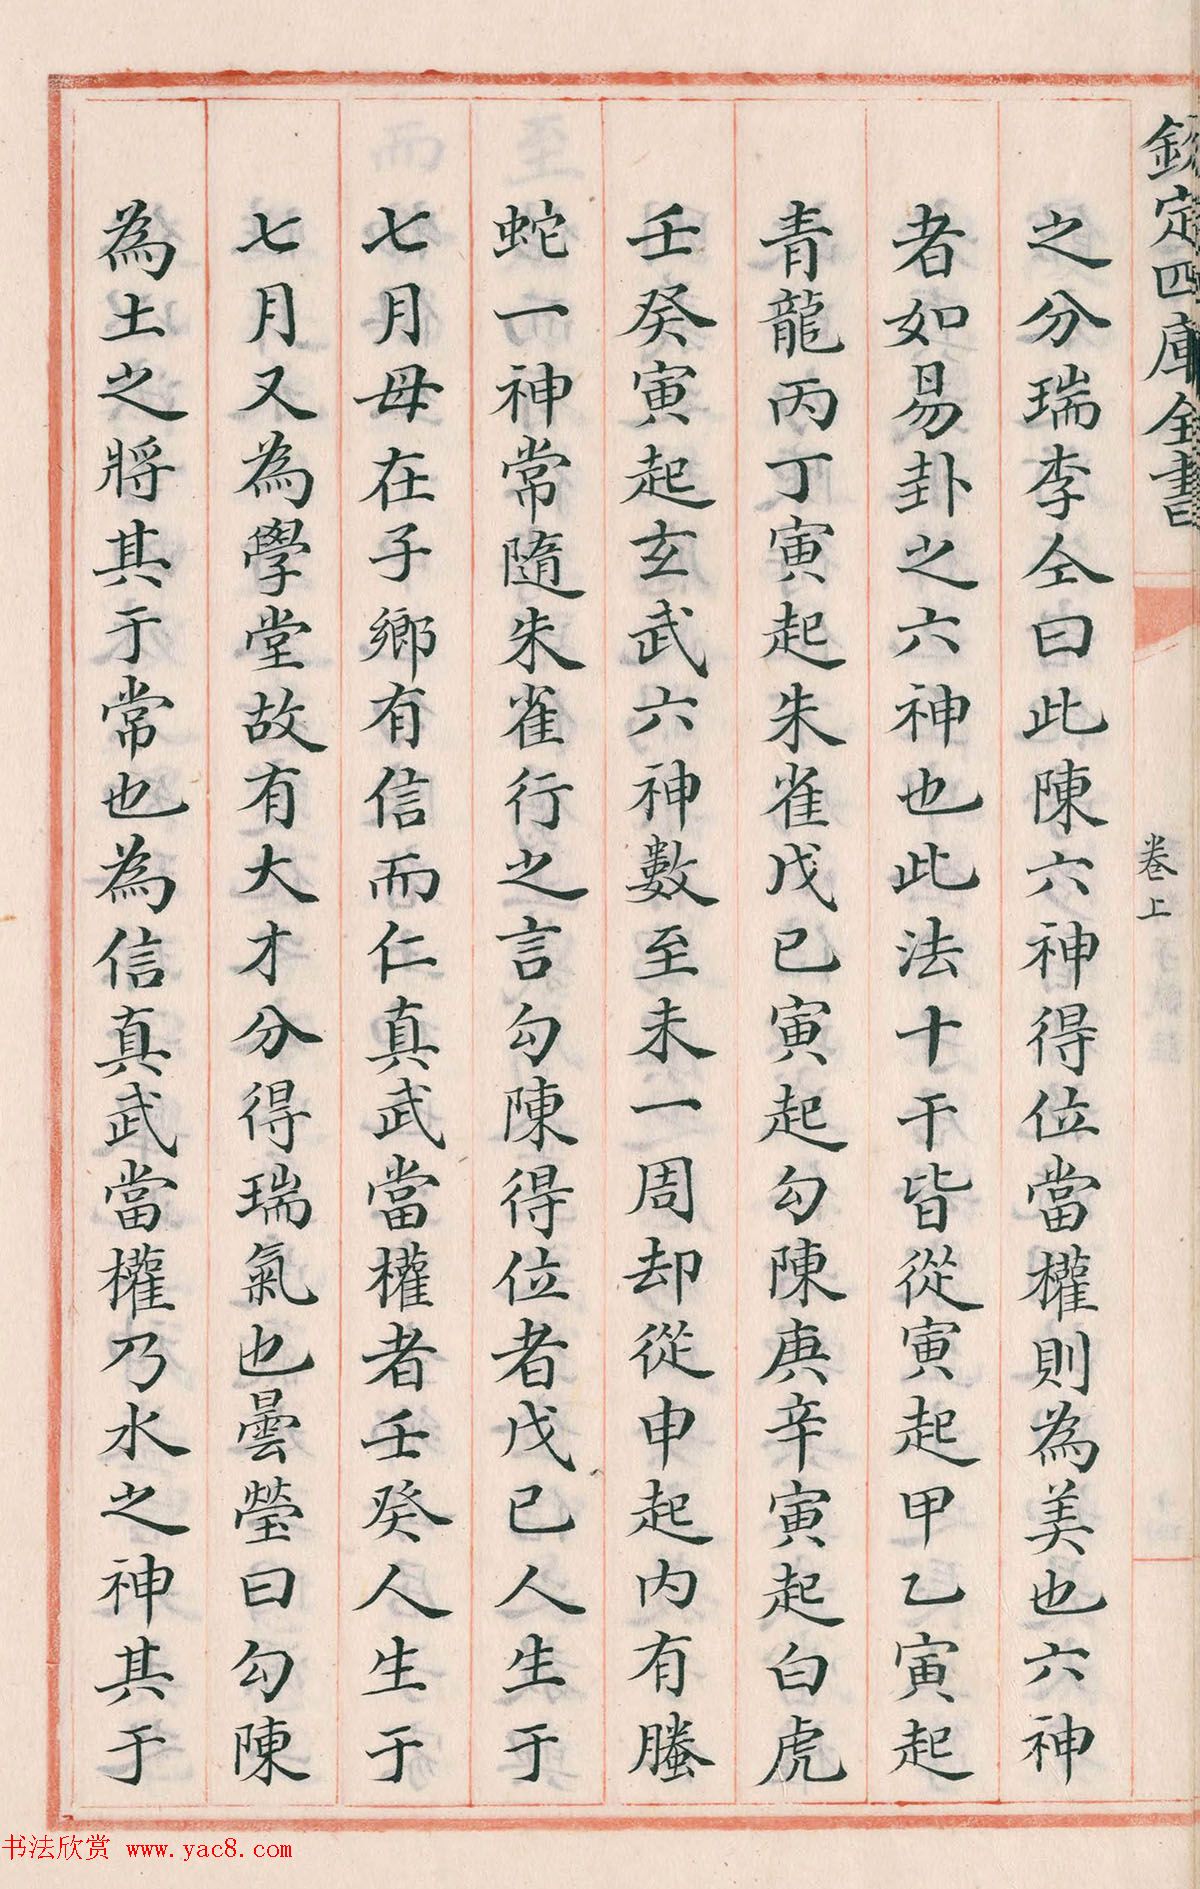 欽定四庫全書
卷上
之分瑞李仝曰此陳六神得位當權則為美也六神
者如易卦之六神也此法十干皆從寅起甲乙寅起
青龍丙丁寅起朱雀戊己寅起勾陳庚辛寅起白虎
壬癸寅起玄武六神數至未一周却從申起内有螣
蛇一神常隨朱雀行之言勾陳得位者戊己人生于
七月母在子鄉有信而仁真武當權者壬癸人生于
七月又為學堂故有大才分得瑞氣也曇瑩曰勾陳
為土之將其于常也為信真武當權乃水之神其于
书法欣赏 www.yac8.com